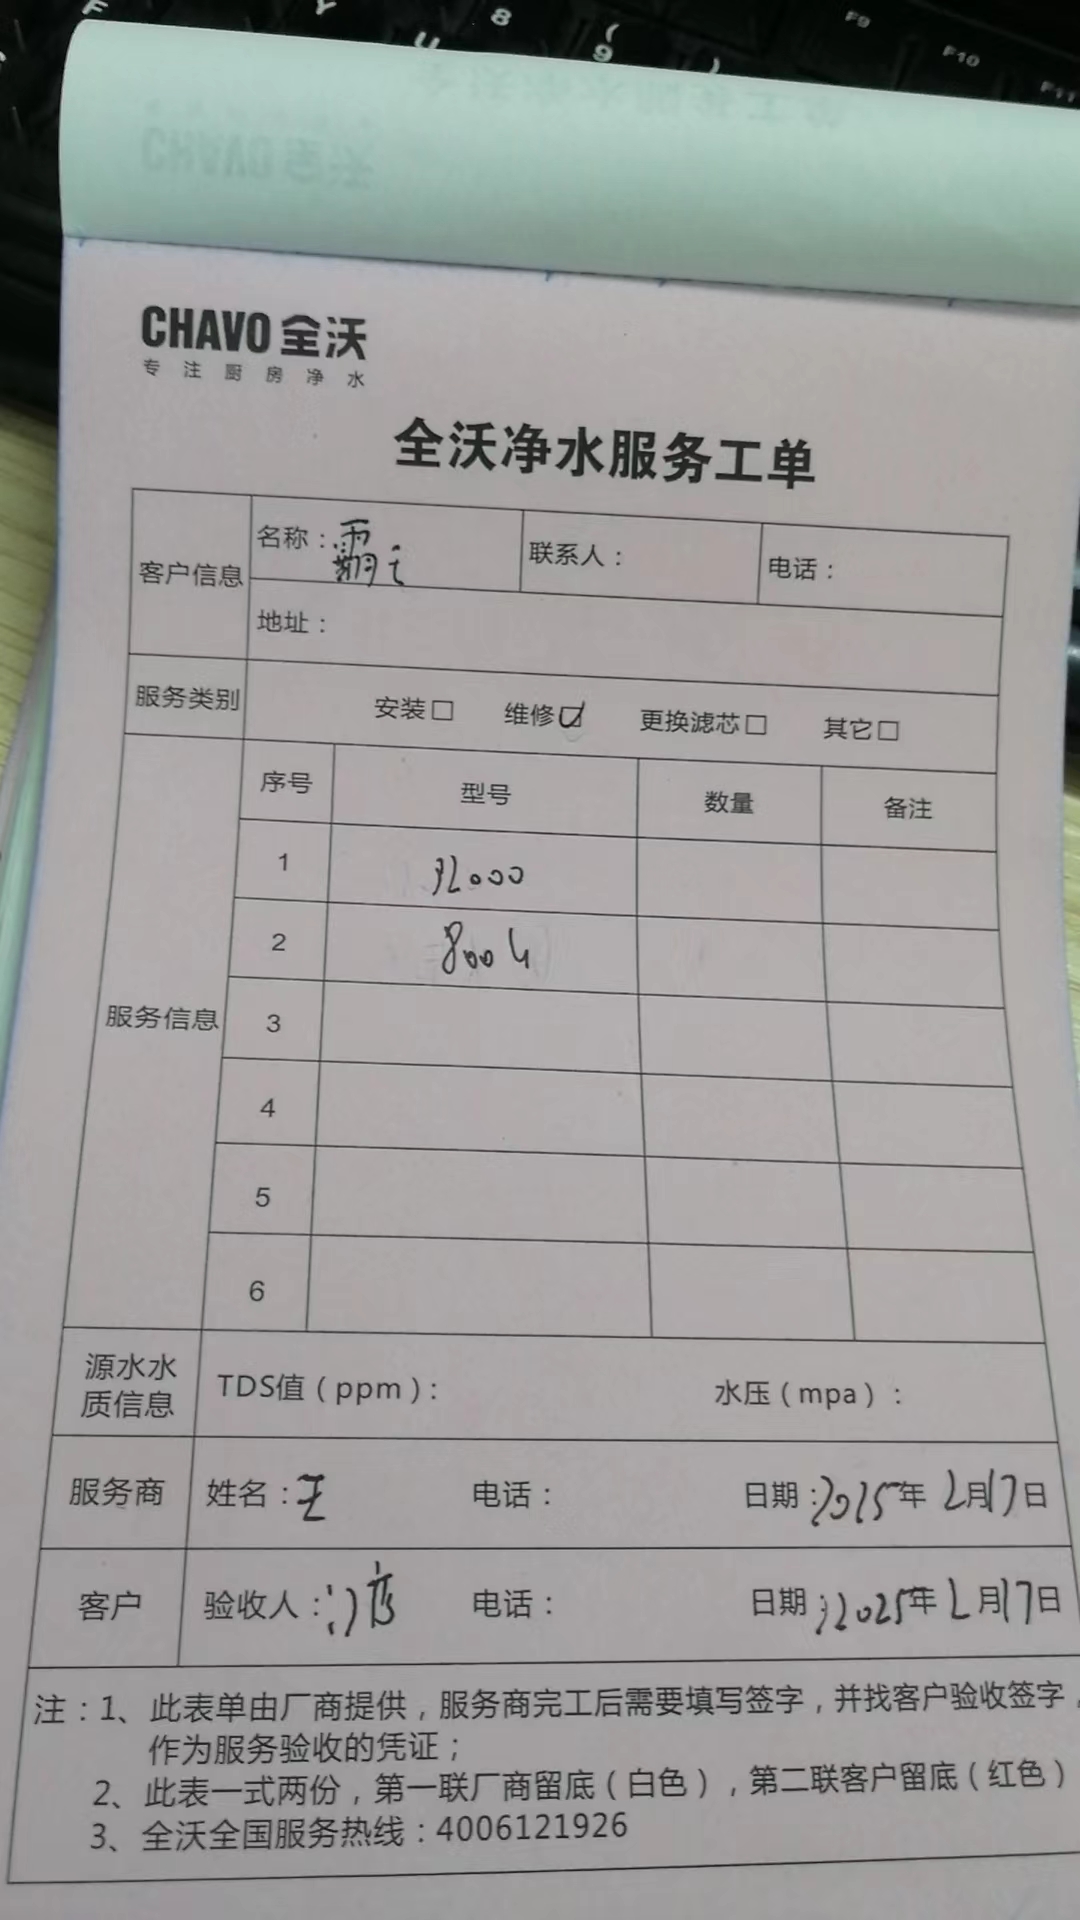 CHAVO 全沃
专注厨房净水
全沃净水服务工单
客户信息 名称：霸王 联系人： 电话：
地址：
服务类别 安装□ 维修☑ 更换滤芯□ 其它□
服务信息 序号 型号 数量 备注
1
2 800G
3
4
5
6
源水水质信息 TDS值（ppm）： 水压（mpa）：
服务商 姓名：王 电话： 日期：2025年2月17日
客户 验收人： 电话： 日期：2025年2月17日
注：1、此表单由厂商提供，服务商完工后需要填写签字，并找客户验收签字，
作为服务验收的凭证；
2、此表一式两份，第一联厂商留底（白色），第二联客户留底（红色）
3、全沃全国服务热线：4006121926